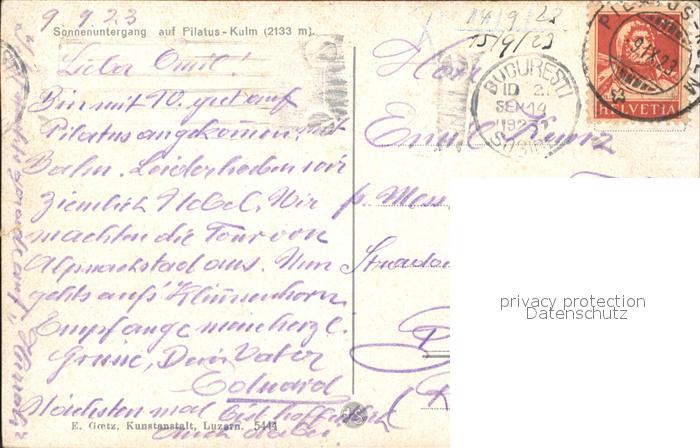 9. 9. 23
Sonnenuntergang auf Pilatus-Kulm (2133 m).
Lieber Emil!
Bin mit 10. gut auf
Pilatus angekommen, mit
Bahn. Leider haben wir
ziemlich Nebel. Wir
machten die Tour von
Alpnachstad aus. Nun
gehts aufs Klimsenhorn
Empfange meine herzl.
Grüsse, Dein Vater
Eduard
Nächstes mal bist hoffentlich
auch dabei
E. Gœtz, Kunstanstalt, Luzern. 5444
14/9/23
15/9/23
Herr
Emil Kunz
p. Mess
Strada
BUCURESTI
SEP 14
1923
SOSIRE
PILATUS-KULM
9.IX.23
HELVETIA
privacy protection
Datenschutz